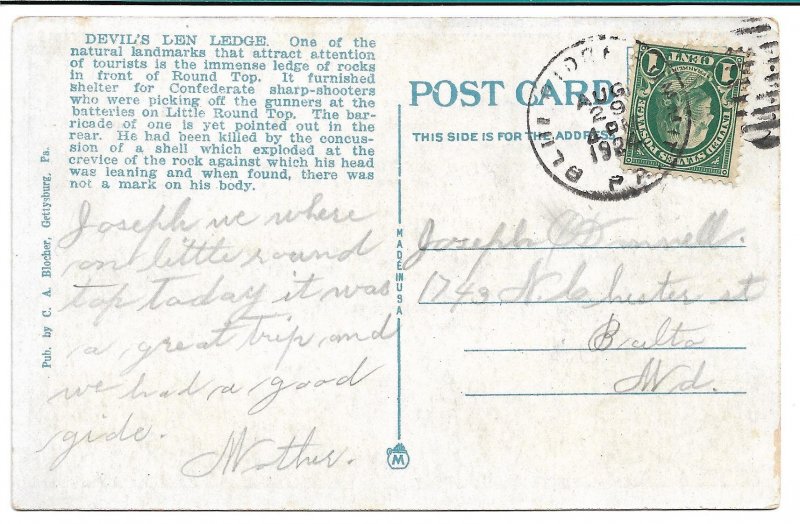 DEVIL'S DEN LEDGE. One of the
natural landmarks that attract attention
of tourists is the immense ledge of rocks
in front of Round Top. It furnished
shelter for Confederate sharp-shooters
who were picking off the gunners at the
batteries on Little Round Top. The bar-
ricade of one is yet pointed out in the
rear. He had been killed by the concus-
sion of a shell which exploded at the
crevice of the rock against which his head
was leaning and when found, there was
not a mark on his body.
Joseph we where
on little round
top today it was
a great trip and
we had a good
gide.
Mother.
Pub. by C. A. Blocher, Gettysburg, Pa.
MADE IN USA
M
POST CARD
THIS SIDE IS FOR THE ADDRESS
AUG
29
PA
1 CENT 1
UNITED STATES POSTAGE
Joseph
1743 N. Chester st
Balto
Md.